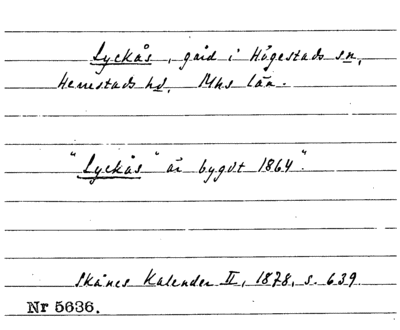 Lyckås, gård i Högestads sn,
Herrestads hd, Mhs län.
"Lyckås" är bygdt 1864".
Skånes Kalender II, 1878, s. 639.
Nr 5636.